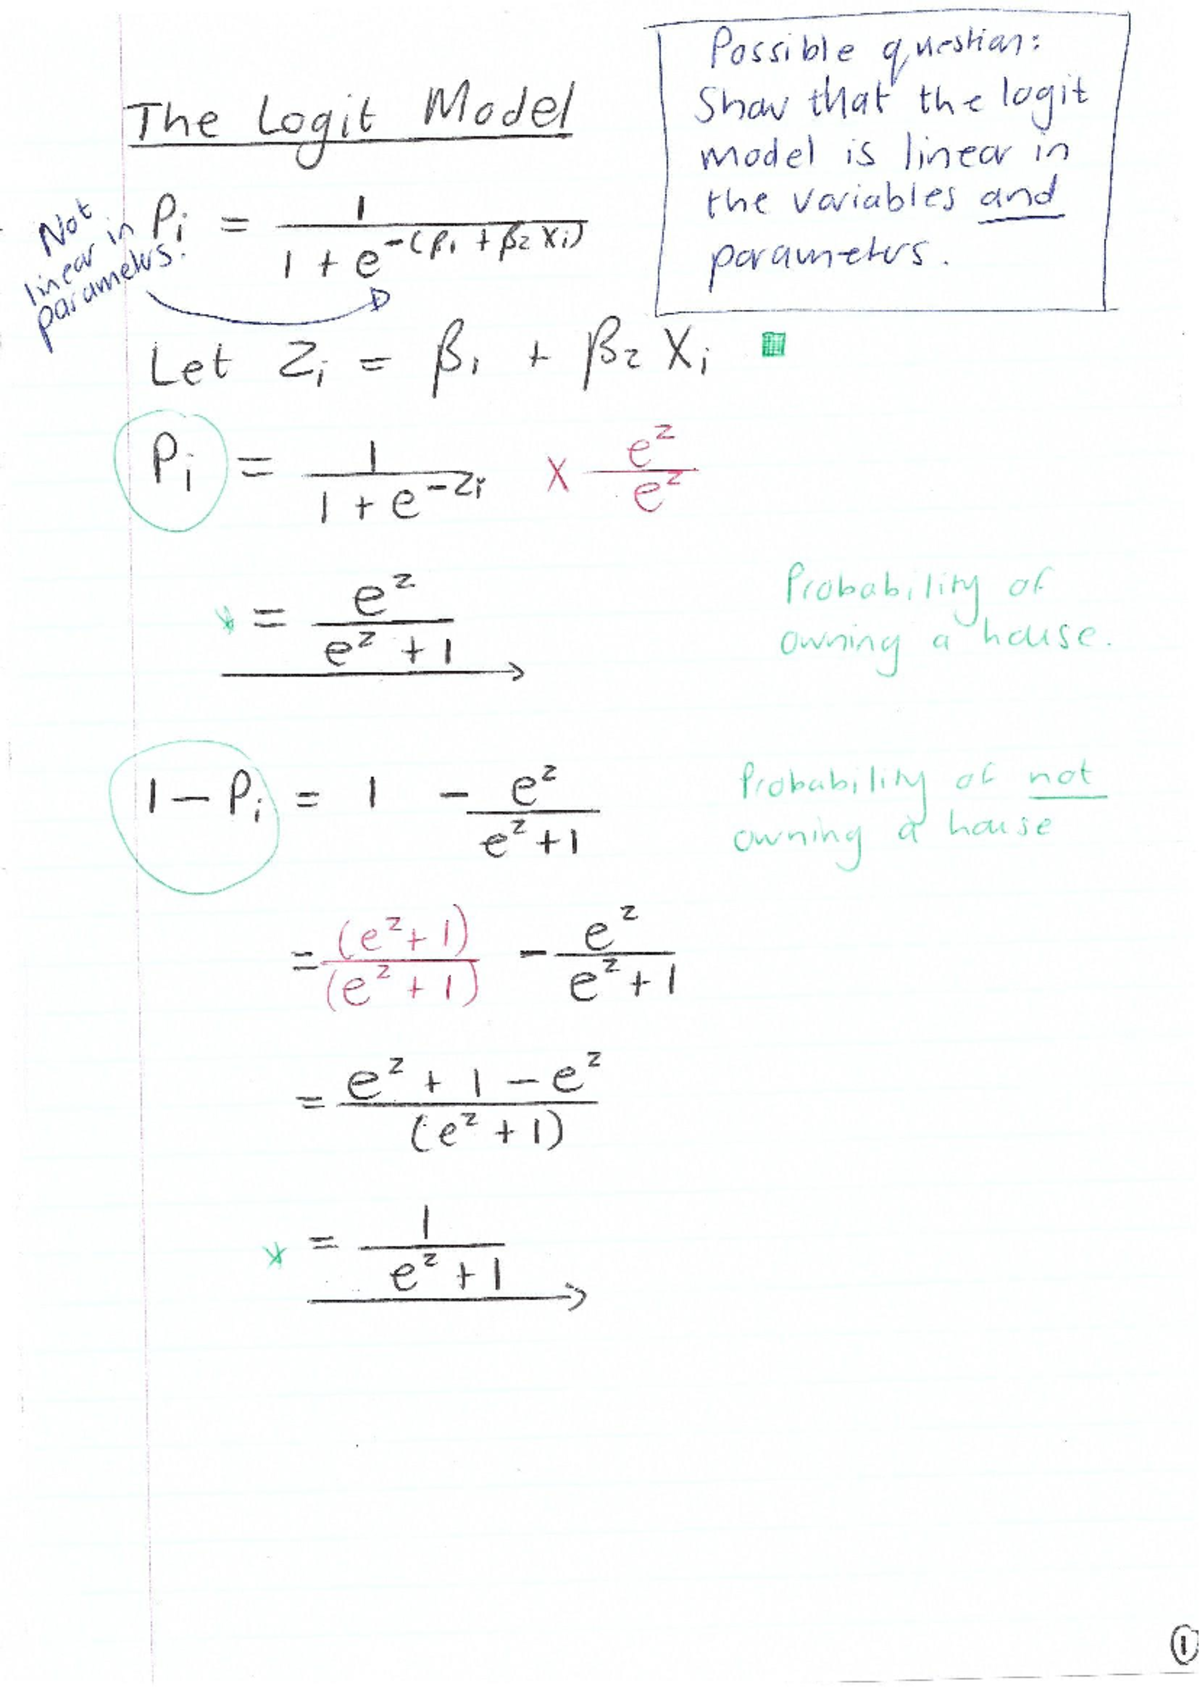 The Logit Model
Possible question:
Show that the logit
model is linear in
the variables and
parameters.
Not
linear in
parameters.
Pi = 1 / (1 + e^-(β1 + β2 Xi))
Let Zi = β1 + β2 Xi
Pi = 1 / (1 + e^-Zi) × e^z / e^z
* = e^z / (e^z + 1)
Probability of
owning a house.
1 - Pi = 1 - e^z / (e^z + 1)
Probability of not
owning a house
= (e^z + 1) / (e^z + 1) - e^z / (e^z + 1)
= (e^z + 1 - e^z) / (e^z + 1)
* = 1 / (e^z + 1)
1